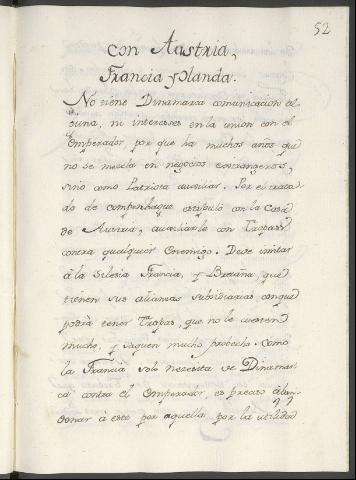 52
Con Austria,
Francia y olanda.
No tiene Dinamarca comunicacion al-
guna, ni interesses en la union con el
Emperador, por que ha muchos años que
no se mezcla en negocios extrangeros,
sino como Patriota auxiliar. Por el trata-
do de compenhague estipuló con la Casa
de Austria, auxiliarle con Tropas
contra qualquier Enemigo. Deve imitar
á la Francia, y Bretaña, que
tienen sus alianzas subsidiarias conque
podrà tener Tropas, que no le cuesten
mucho, y saquen mucho probecho. Como
la Francia solo necesita de Dinamar-
ca contra el Emperador, es preciso aban-
donar à este por aquella por la utilidad